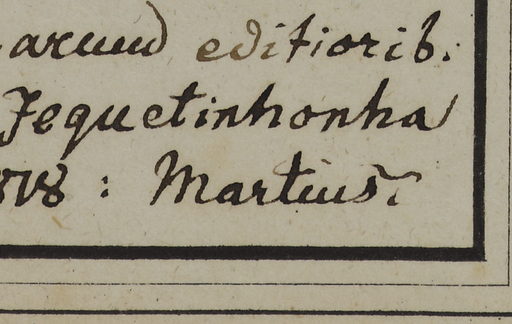 arum editiorib.
Jequetinhonha
1818 : Martius.